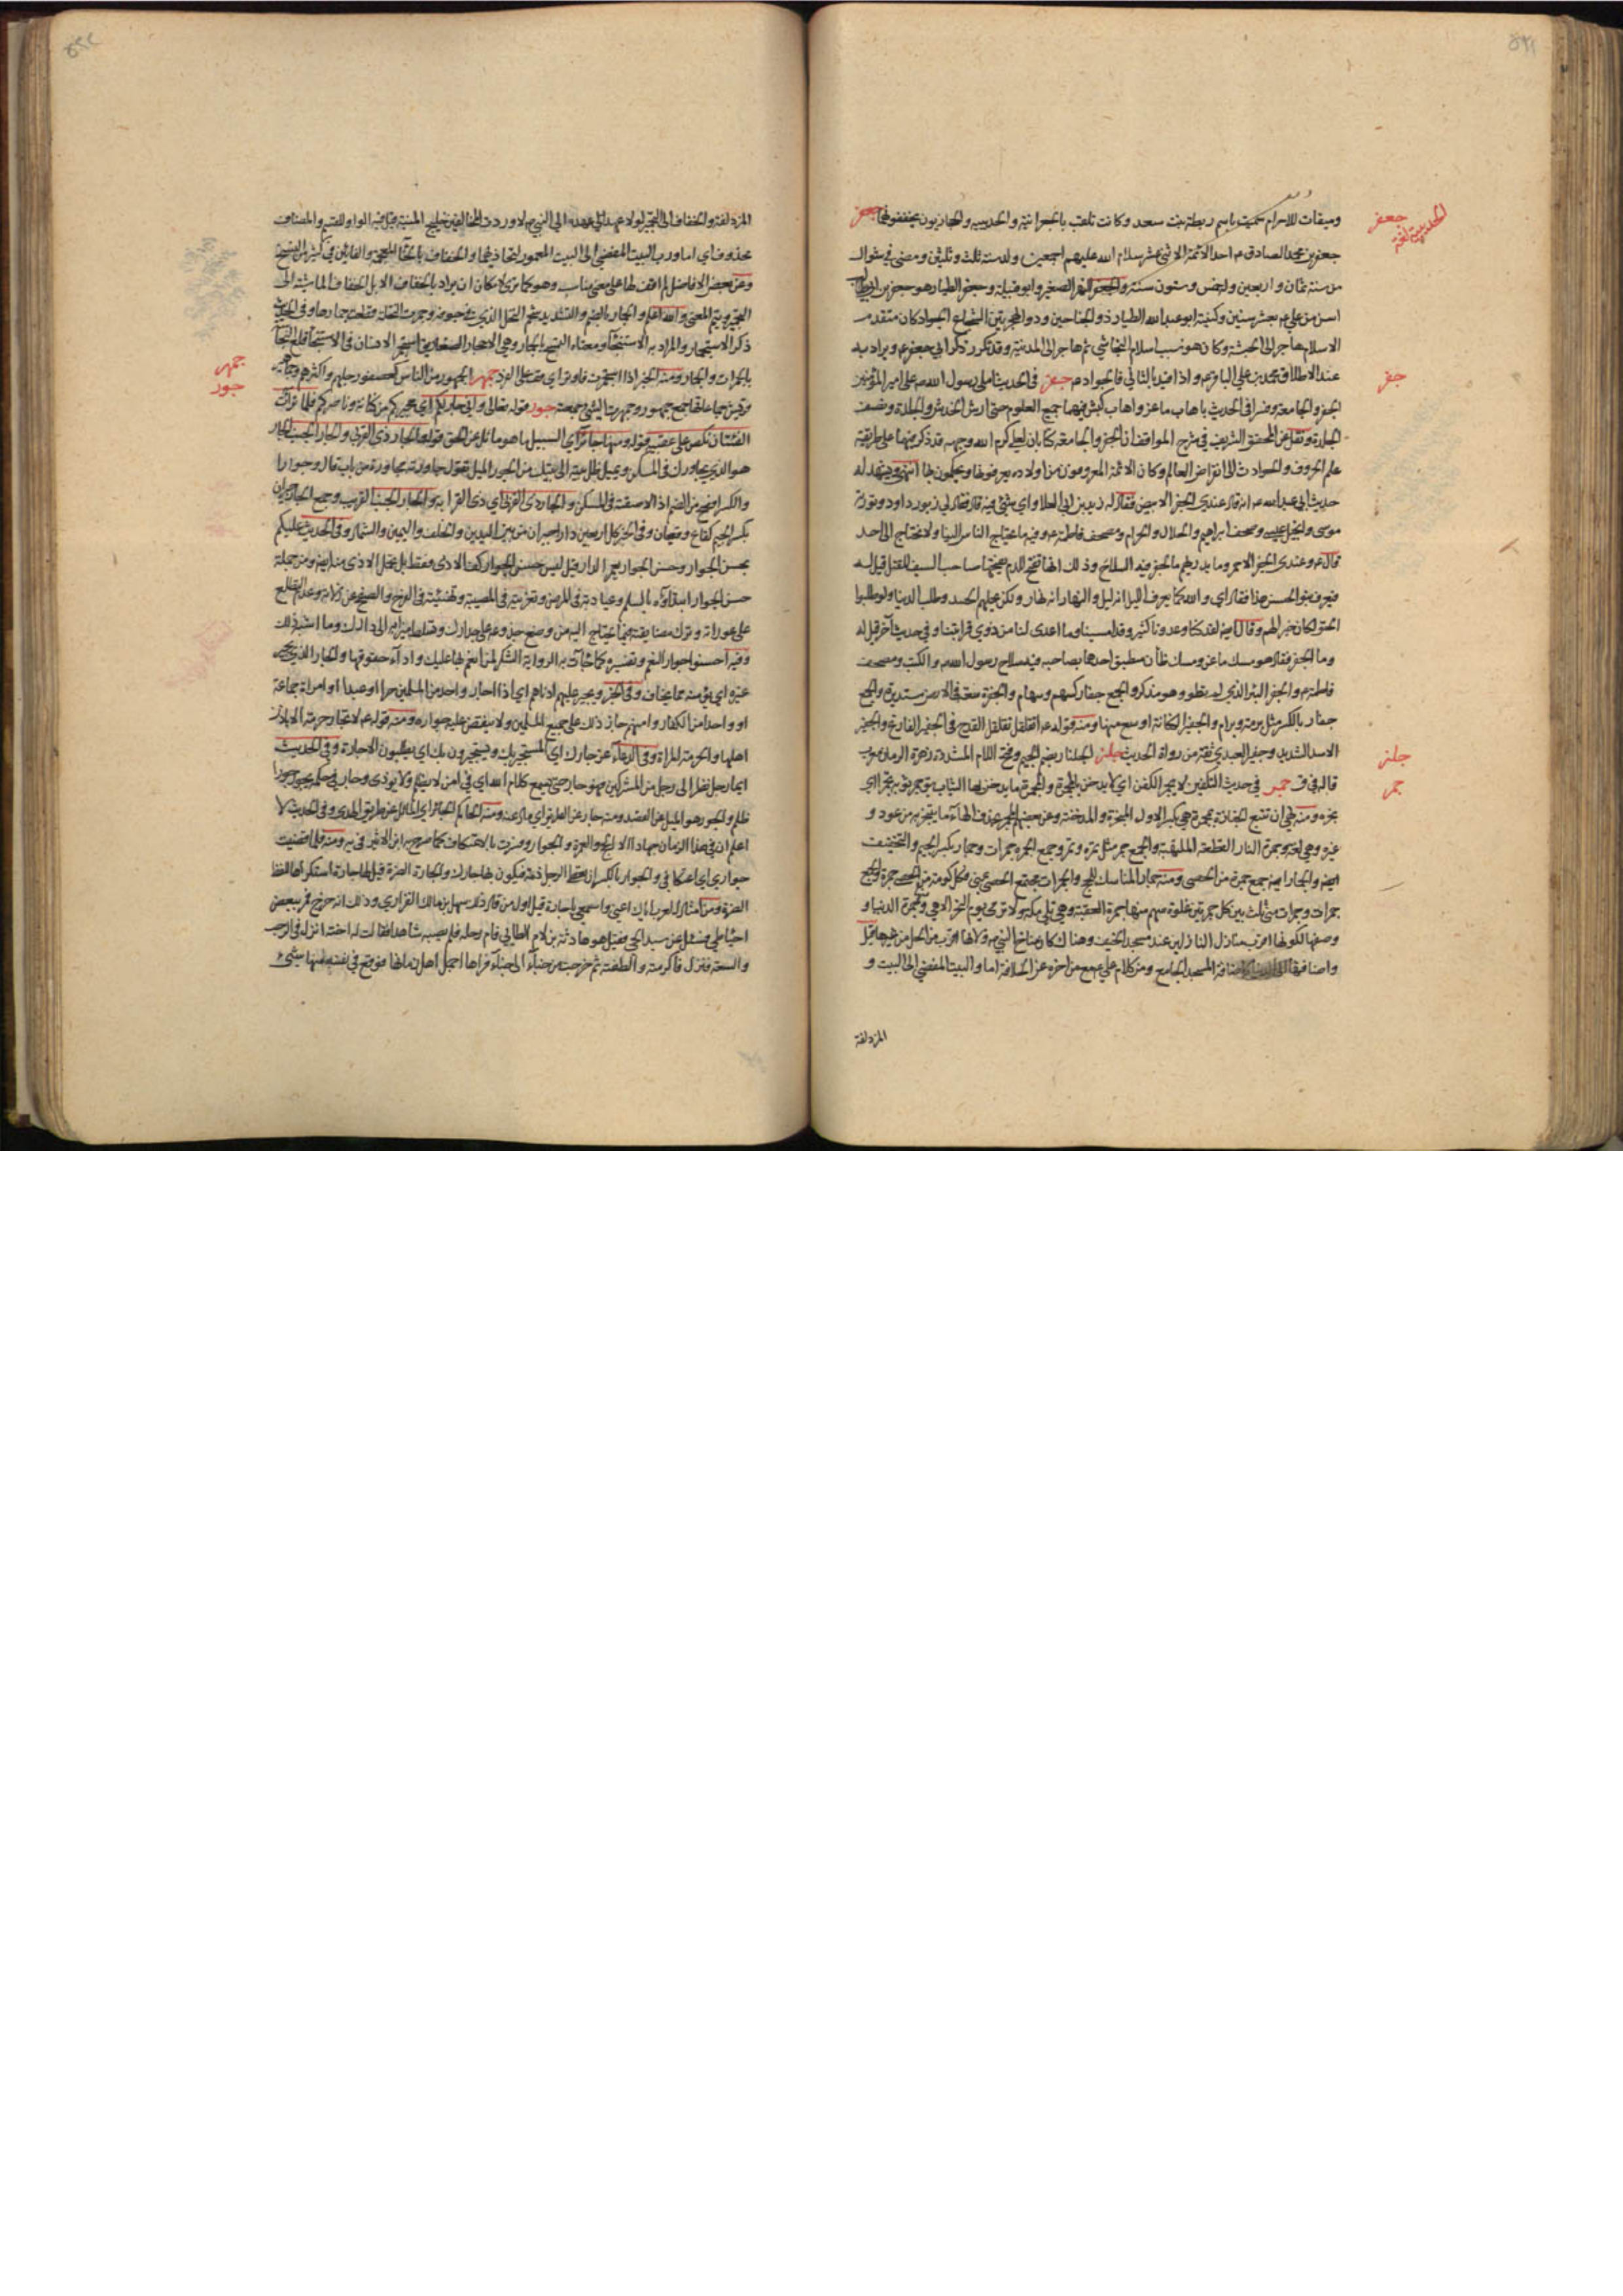 وميقات للاحرام سميت باسم ريطة بنت سعد وكانت تلقب بالجعرانة والحديبيه والحجازيون يخففونهما جعفر
جعفر بن محمد الصادق ع احد الائمة الاثنى عشر سلام الله عليهم اجمعين ولد سنه ثلث وثلثين ومضى في شوال
من سنة ثمان واربعين وله خمس وستون سنة والجعفر النهر الصغير وابو قبيلة وجعفر الطيار هو جعفر بن ابيطالب
اسن من علي ع بعشر سنين وكنيته ابو عبد الله الطيار ذو الجناحين وذو الهجرتين الشجاع الجواد كان متقدم
الاسلام هاجر الى الحبشة وكان هو سبب اسلام النجاشي ثم هاجر الى المدينة وقد تكرر ذكر ابي جعفر ع ويراد به
عند الاطلاق محمد بن علي الباقر ع واذا قيد بالثاني فالجواد ع جفر في الحديث املى رسول الله ص على امير المؤمنين
الجفر والجامعة وفسرا في الحديث باهاب ماعز واهاب كبش فيهما جميع العلوم حتى ارش الخدش والجلدة ونصف
الجلدة ونقل عن المحقق الشريف في شرح المواقف ان الجفر والجامعة كتابان لعلي كرم الله وجهه قد ذكر فيهما على طريقة
علم الحروف الحوادث الى انقراض العالم وكان الائمة المعروفون من اولاده يعرفونها ويحكمون بها انتهى ويشهد له
حديث ابي عبد الله ع انه قال عندي الجفر الابيض فقال له زيد بن ابي العلا واي شيئ فيه قال فقال لي زبور داود وتورية
موسى وانجيل عيسى وصحف ابراهيم والحلال والحرام ومصحف فاطمة ع وفيه ما يحتاج الناس الينا ولا نحتاج الى احد
قال ع وعندى الجفر الاحمر وما يدريهم ما الجفر فيه السلاح وذلك انها تفتح للدم يفتحها صاحب السيف للقتل قيل له
فيعرف بنو الحسن هذا فقال اي والله كما يعرف الليل انه ليل والنهار انه نهار ولكن يحملهم الحسد وطلب الدنيا ولو طلبوا
الحق لكان خيرا لهم
وما الجفر فقال هو مسك ماعز ومسك ضأن مطبق احدهما بصاحبه فيه سلاح رسول الله ص والكتب ومصحف
فاطمة ع والجفر البئر الذي لم يطو وهو مذكر والجمع جفار كسهم وسهام والجفرة سعة في الارض مستديرة والجمع
جفار بالكسر مثل برمة وبرام والجفير الكنانة اوسع منها ومنه قوله ع اتقلقل تقلقل القدح في الجفير الفارغ والجيفر
الاسد الشديد وجيفر العبدي ثقة من رواة الحديث جلنر الجلنار بضم الجيم وفتح اللام المشددة زهرة الرمان معرب
قاله في ق جمر في حديث التكفين لا يجمر الكفن اي لا يدخن بالمجمرة والمجمرة ما يدخن بها الثياب
بخره ومنه نهي ان تتبع الجنازة بمجمرة هي بكسر الاول المبخرة والمدخنة
غيره وهي لغة وجمرة النار القطعة الملتهبة والجمع جمر مثل تمرة وتمر وجمع الجمرة جمرات وجمار بكسر الجيم والتخفيف
ايضا والجمار ايضا جمع جمرة من الحصى ومنه جمار المناسك للحج والجمرات مجتمع الحصى بمنى فكل كومة من الحصى جمرة والجمع
جمرات وجمرات منى ثلث بين كل جمرتين غلوة سهم منها جمرة العقبة وهي تلي مكة ولا ترمى يوم النحر الا هي وجمرة الدنيا و
وصفها لكونها اقرب منازل النازلين عند مسجد الخيف وهناك كان مناخ النبي ص ولانها اقرب من الحل من غيرها قيل
واضافتها الى الدنيا كاضافة المسجد الجامع ومن كلام علي ع مع من اخره عن الخلافة اما والبيت المفضي الى البيت و
المزدلفة
الحديبية لغة
جعفر
جفر
جلنر
جمر
المزدلفة والخفاف الى التجمير لولا عهد الي عهده الى النبي ص لاوردت المخالفين خليج المنية قيل فيه الواو للقسم والمضاف
محذوف اي اما ورب البيت المفضي الى البيت المعمور
وعن بعض الافاضل لم اقف لها على معنى مناسب وهو كما ترى لامكان ان يراد بالخفاف الابل الخفاف الماشية الى
ذكر الاستجمار والمراد به الاستنجاء ومعناه التمسح بالجمار وهي الاحجار الصغار
جمهر الجمهور من الناس كعصفور جلهم واكثرهم
جمع جمهور وجمهرت الشيئ جمعته جور قوله تعالى واني جار لكم اي مجيركم من كنانة وناصركم فلما تراءت
الفئتان نكص على عقبيه قوله ومنها جائر اي السبيل ما هو مائل عن الحق قوله والجار ذي القربى والجار الجنب الجار
هو الذي يجاورك في المسكن ويميل ظل بيته الى بيتك من الجور الميل تقول جاورته مجاورة من باب قاتل وجوارا
والكسر افصح من الضم اذا لاصقته في المسكن والجار ذى القربى اي ذى القرابة والجار الجنب الغريب وجمع الجار جيران
بكسر الجيم كقاع وقيعان وفى الخبر كل اربعين دارا جيران من بين اليدين والخلف واليمين والشمال وفى الحديث عليكم
بحسن الجوار وحسن الجوار يعمر الدار قيل ليس حسن الجوار كف الاذى فقط بل تحمل الاذى منه ايضا ومن جملة
حسن الجوار ابتداؤه بالسلم وعيادته في المرض وتعزيته في المصيبة وتهنيئته في الفرح والصفح عن زلاته وعدم التطلع
على عوراته وترك مضايقته فيما يحتاج اليه من وضع جذوعه على جدارك وتسلط ميزابه الى دارك وما اشبه ذلك
وفيه احسنوا جوار النعم وتفسيره كما جاءت به الرواية الشكر لمن انعم بها عليك واداء حقوقها والجار الذي يجير
غيره اي يؤمنه مما يخاف وفى الخبر ويجير عليهم ادناهم اي اذا اجار واحد من المسلمين حرا او عبدا او امراة جماعة
او واحدا من الكفار وامنهم جاز ذلك على جميع المسلمين ولا ينقض عليه جواره ومنه قوله ع لا تجار حرمة الا باذن
اهلها والحرمة المراة وفى الدعاء عز جارك اي المستجير بك ويستجيرون بك اي يطلبون الاجارة وفى الحديث
ايما رجل نظر الى رجل من المشركين فهو جار حتى يسمع كلام الله اي في امن لا يظلم ولا يؤذى وجار في حكمه يجور جورا
ظلم والجور هو الميل عن القصد ومنه جار عن الطريق اي مال عنه ومنه الحاكم الجائر اي المائل عن طريق الهدى وفى الحديث لا
اعلم ان في هذا الزمان جهادا الا الحج والعمرة والجوار وفسرت بالاعتكاف كما صرح به ابن الاثير في يه ومنه فلما قضيت
جواري اي اعتكافي والجوار بالكسر ان يعطي الرجل ذمة فيكون بها جارك والجارة الضرة قيل لها جارة استكراها للفظ
الضرة ومن امثال العرب اياك اعني واسمعي يا جارة قيل اول من قال ذلك سهل بن مالك الفزاري وذلك انه خرج فمر ببعض
احياء طي فسئل عن سيد الحي فقيل هو حارثة بن لام الطائي فام رحله فلم يصبه شاهدا فقالت له اخته انزل في الرحب
والسعة فنزل فاكرمته والطفته ثم خرجت من خباء الى خباء فراها اجمل اهل زمانها فوقع في نفسه منها شيئ
جمهر
جور